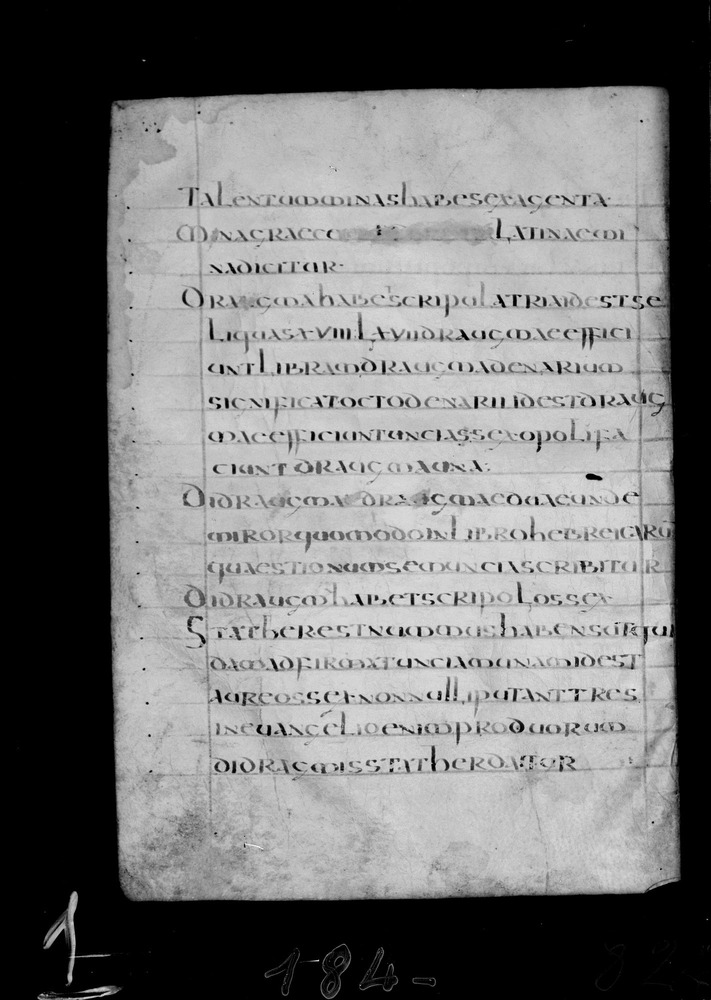 TALENTUM MINAS HABES SEXAGENTA
MNA GRAECE LATINAE MI
NA DICITUR
DRAUGMA HABE SCRIPULA TRIA ID EST SE
LIQUAS XVIII LXVII DRAUGMAE EFFICI
UNT LIBRAM DRAUGMA DENARIUM
SIGNIFICAT OCTO DENARII ID EST DRAUG
MAE EFFICIUNT UNCIAS SEXOPOLI FA
CIUNT DRAUGMA UNA
DIDRAUGMA DRAUGMAE DUAE UNDE
MIROR QUOMODO IN LIBRO HEBREICARU
QUAESTIONUM SEMUNCIA SCRIBITUR
DIDRAUGM HABET SCRIPOLOS SEX
STATHER EST NUMMUS HABENS UT QUI
DAM ADFIRMAT UNCIAM UNAM ID EST
AUREOS SEX NONNULLI PUTANT TRES
IN EUANGELIO ENIM PRO DUORUM
DIDRAGMIS STATHER DATUR
1
184-